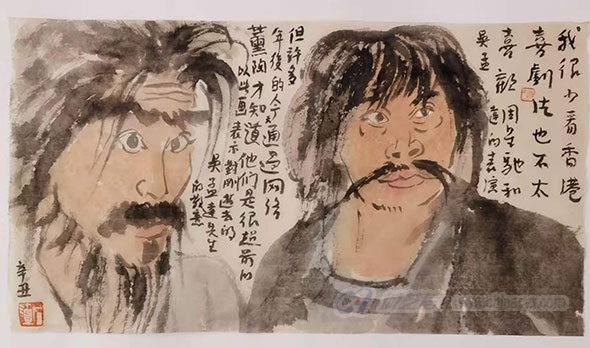 我很少看香港
喜劇片也不太
喜歡周星馳和
吴孟達的表演
但許多
年後的今天通過网络
薰陶才知道他们是很超前的
以此画表示對刚逝去的
吴孟達先生
的敬意
辛丑